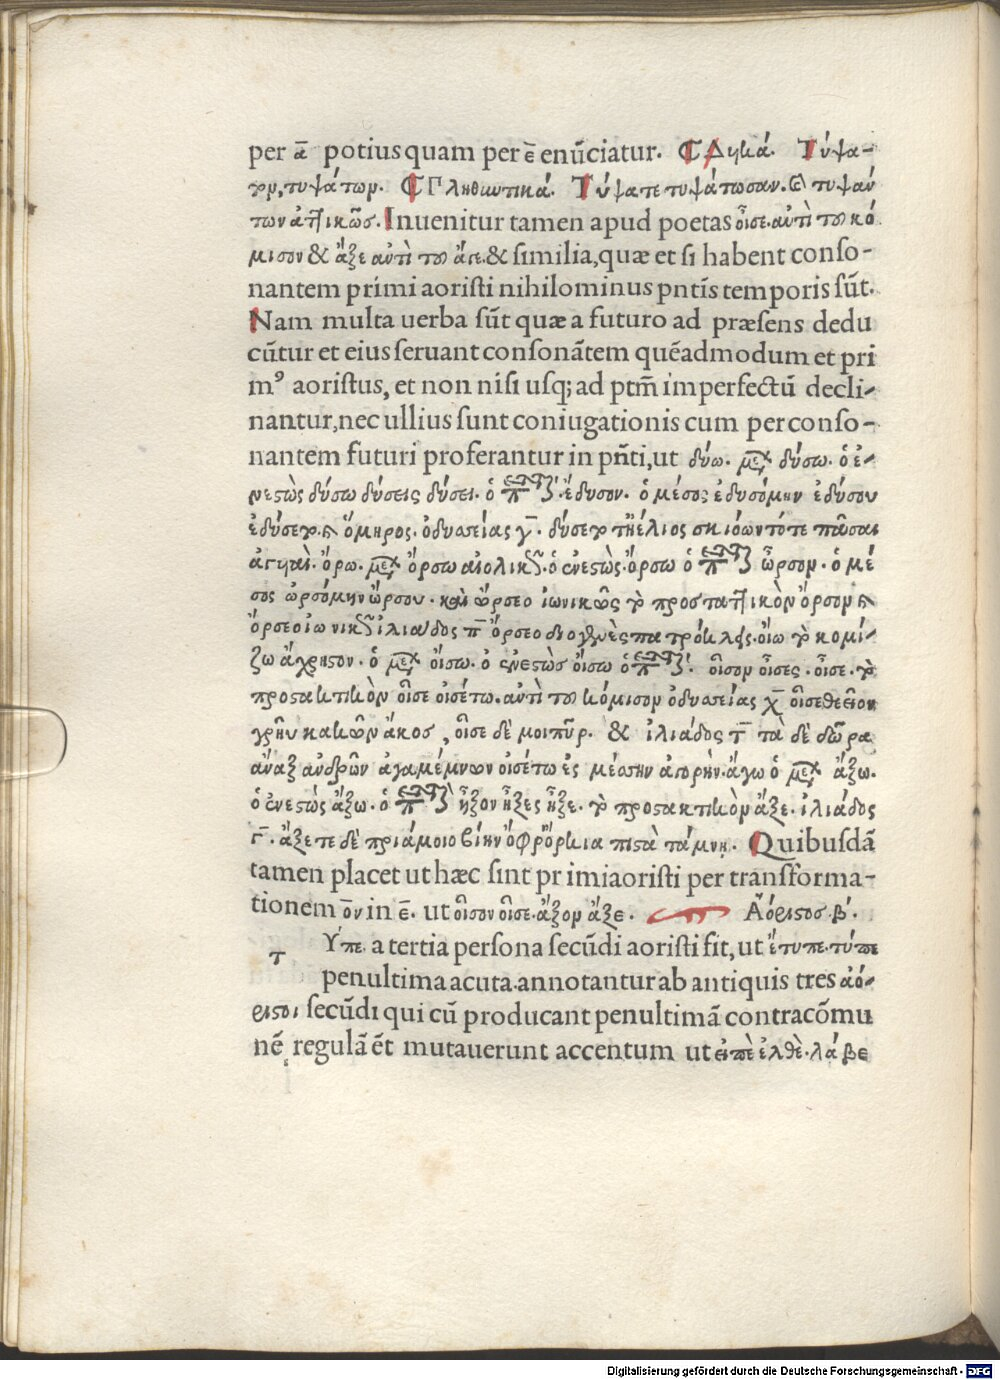 per α̅ potius quam per ε̅ enūciatur. ¶ Δυϊκά. Τύψα-
τον, τυψάτων. ¶ Πληθυντικά. Τύψατε τυψάτωσαν. τυψάν
των ἀττικῶς. Inuenitur tamen apud poetas οἶσε. ἀντὶ τοῦ κό
μισον & ἄξε ἀντὶ τοῦ ἄγε. & similia, quæ et si habent conso-
nantem primi aoristi nihilominus pntīs temporis sūt.
Nam multa uerba sūt quæ a futuro ad præsens dedu
cūtur et eius seruant consonātem quēadmodum et pri
m⁹ aoristus, et non nisi usq; ad ptm̄ imperfectū decli-
nantur, nec ullius sunt coniugationis cum per conso-
nantem futuri proferantur in pn̄ti, ut δύω. δύσω. ὁ ἐ-
νεστὼς δύσω δύσεις δύσει. ὁ ἔδυσον. ὁ μέσος ἐδυσόμην ἐδύσου
ἐδύσετο. ὅμηρος. ὀδυσσείας γ̅. δύσετο τ' ἠέλιος σκιόωντό τε πᾶσαι
ἀγυιαί. ὄρω. ὄρσω αἰολικῶς. ὁ ἐνεστὼς. ὄρσω ὁ ὦρσον. ὁ μέ
σος ὠρσόμην ὤρσου. καὶ ὤρσεο ἰωνικῶς τὸ προστατικὸν ὄρσου
ὄρσεο ἰωνικῶς ἰλιάδος π̅ ὄρσεο διογενὲς πατρόκλεις. οἴω τὸ κομί-
ζω ἄχρηστον. ὁ οἴσω. ὁ ἐνεστὼς οἴσω ὁ οἶσον οἶσες. οἶσε. τὸ
προστακτικὸν οἶσε οἰσέτω. ἀντὶ τοῦ κόμισον ὀδυσσείας χ̅ οἶσε θέειον
γρηῢ κακῶν ἄκος, οἶσε δὲ μοι πῦρ. & ἰλιάδος τ̅ τὰ δὲ δῶρα
ἄναξ ἀνδρῶν ἀγαμέμνων οἰσέτω ἐς μέσσην ἀγορήν. ἄγω ὁ ἄξω.
ὁ ἐνεστὼς ἄξω. ὁ ἦξον ἦξες ἦξε. τὸ προστακτικὸν ἄξε. ἰλιάδος
γ̅. ἄξετε δὲ πριάμοιο βίην ὄφρ' ὅρκια πιστὰ τάμνῃ. Quibusdā
tamen placet ut hæc sint primi aoristi per transforma-
tionem ο̅ν in ε̅. ut οἶσον οἶσε. ἄξον ἄξε. Ἀόριστος. β'.
τ Υπε. a tertia persona secūdi aoristi fit, ut ἔτυπε. τύπε
penultima acuta. annotantur ab antiquis tres ἀό-
ριστοι secūdi qui cū producant penultimā contra cōmu
nē regulā ēt mutauerunt accentum ut εἰπὲ ἐλθὲ. λάβε
Digitalisierung gefördert durch die Deutsche Forschungsgemeinschaft - DFG